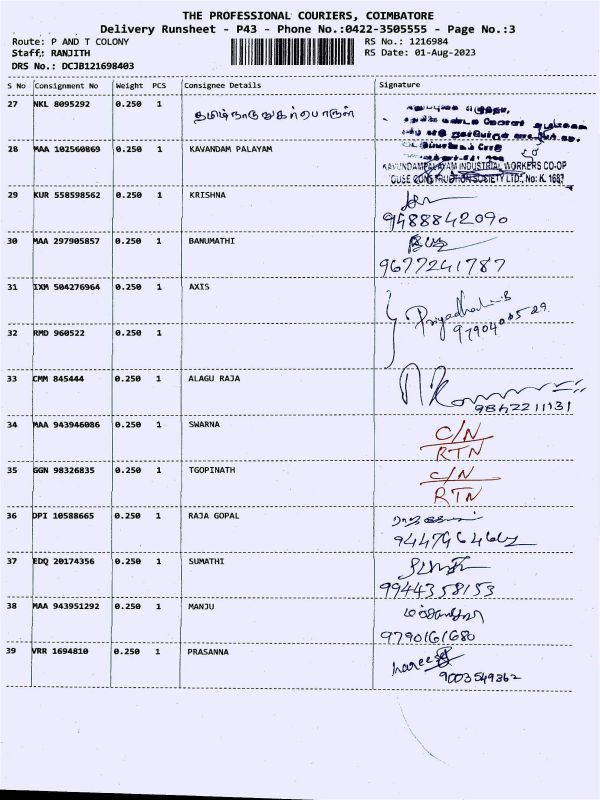 THE PROFESSIONAL COURIERS, COIMBATORE
Delivery Runsheet - P43 - Phone No.:0422-3505555 - Page No.:3
Route: P AND T COLONY
RS No.: 1216984
Staff: RANJITH
RS Date: 01-Aug-2023
DRS No.: DCJB121698403
S No Consignment No Weight PCS Consignee Details Signature
27 NKL 8095292 0.250 1
28 MAA 102560869 0.250 1 KAVANDAM PALAYAM
KAVUNDAMPALAYAM INDUSTRIAL WORKERS CO-OP
OUSE CONSTRUCTION SOCIETY LTD., No: K. 1687
29 KUR 558598562 0.250 1 KRISHNA
9488842090
30 MAA 297905857 0.250 1 BANUMATHI
9677241787
31 IXM 504276964 0.250 1 AXIS
32 RMD 960522 0.250 1
33 CMM 845444 0.250 1 ALAGU RAJA
9842211131
34 MAA 943946086 0.250 1 SWARNA
C/N
RTN
35 GGN 98326835 0.250 1 TGOPINATH
C/N
RTN
36 DPI 10588665 0.250 1 RAJA GOPAL
37 EDQ 20174356 0.250 1 SUMATHI
9944358153
38 MAA 943951292 0.250 1 MANJU
9790161680
39 VRR 1694810 0.250 1 PRASANNA
9003549362